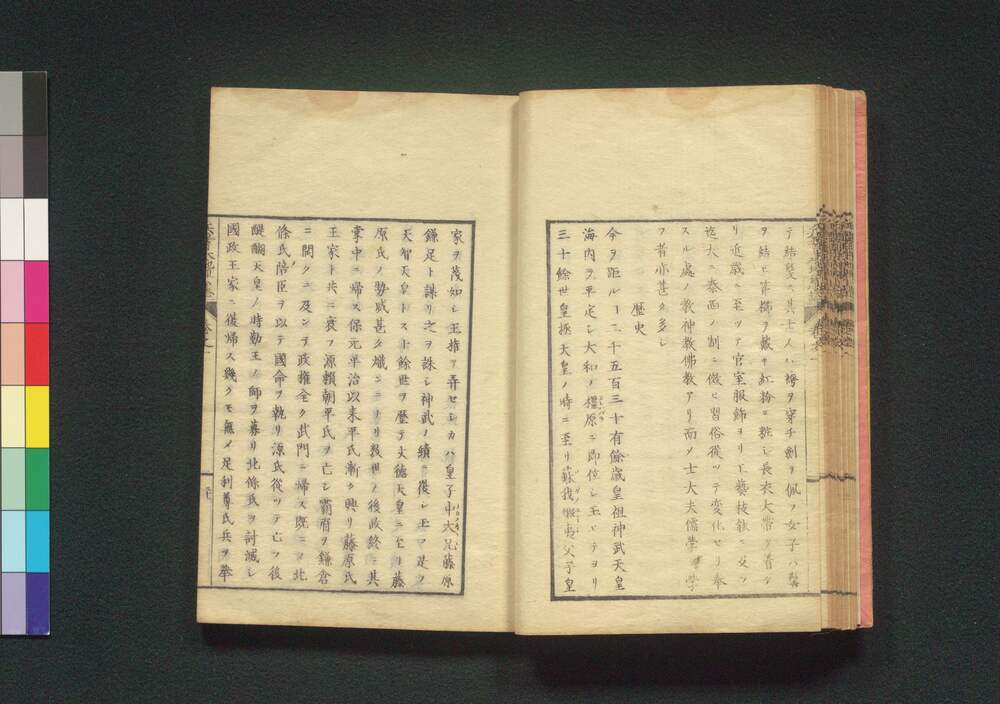 テ結髪ニ其士人ハ袴ヲ穿チ劍ヲ佩フ女子ハ鬢
ヲ結ヒ笄擲ヲ戴キ紅粉ニ粧ヒ長衣大帶ヲ着シ
リ近歳ニ至ツテ官室服飾ヨリ工藝技藝ニ及フ
迄大ニ泰西ノ制ニ傚ヒ習俗從ツテ変化セリ奉
スル處ノ教神教佛教アリ而ノ士大夫儒學ヲ學
フ者亦甚タ多シ
歷史
今ヲ距ル一二千五百三十有餘歳皇祖神武天皇
海内ヲ平定シ大和ノ橿原ニ即位シ玉ヒテヨリ
三十餘世皇極天皇ノ時ニ至リ蘇我蝦夷父子皇
家ヲ蔑如シ王権ヲ弄セシカハ皇子中大兄藤原
鎌足ト謀リ之ヲ誅シ神武ノ績ニ復シ玉フ是ヲ
天智天皇トス十餘世ヲ歷テ文徳天皇ニ至リ藤
原氏ノ勢威甚タ熾ニシテ數世ノ後政終ニ其
掌中ニ歸ス保元平治以来平氏漸ク興リ藤原氏
王家ト共ニ衰フ源賴朝平氏ヲ亡シ霸府ヲ鎌倉
ニ開クニ及ンテ政権全ク武門ニ歸ス既ニシテ北
條氏陪臣ヲ以テ國命ヲ執リ源氏從ツテ亡フ後
醍醐天皇ノ時勤王ノ師ヲ募リ北條氏ヲ討滅シ
國政王家ニ復歸ス幾クモ無メ足利尊氏兵ヲ擧